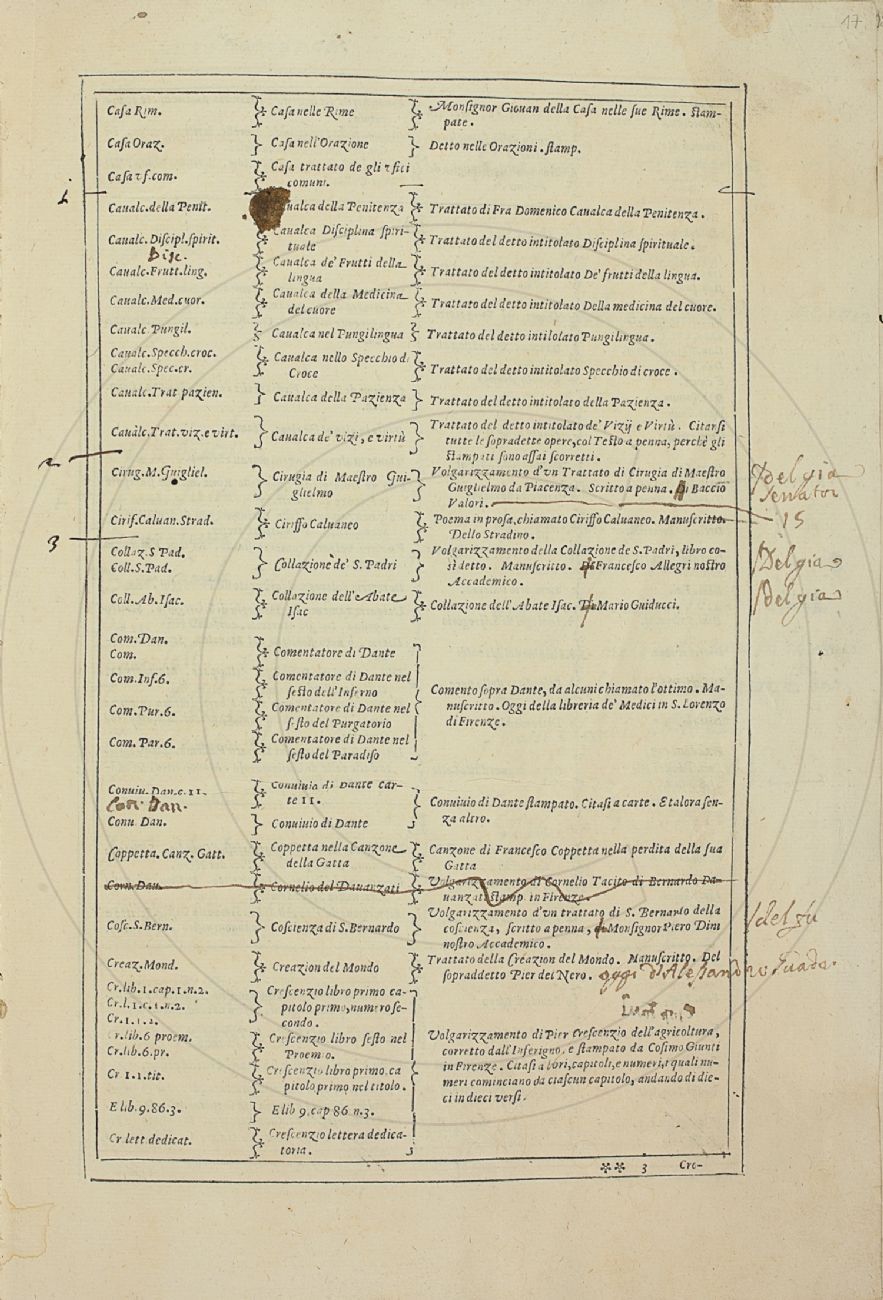 17
Caſa Rim. Caſa nelle Rime Monſignor Giouan della Caſa nelle ſue Rime. ſtam-
pate.
Caſa Oraz. Caſa nell'Orazione Detto nelle Orazioni. ſtamp.
Caſa vf. com. Caſa trattato de gli vfici
comuni.
Caualc. della Penit. Caualca della Penitenza Trattato di Fra Domenico Caualca della Penitenza.
Caualc. Diſcipl. ſpirit. Caualca Diſciplina ſpiri-
tuale Trattato del detto intitolato Diſciplina ſpirituale.
Diſc.
Caualc. Frutt. ling. Caualca de' Frutti della
lingua Trattato del detto intitolato De' frutti della lingua.
Caualc. Med. cuor. Caualca della Medicina
del cuore Trattato del detto intitolato Della medicina del cuore.
Caualc. Pungil. Caualca nel Pungilingua Trattato del detto intilolato Pungilingua.
Caualc. Specch. croc. Caualca nello Specchio di
Caualc. Spec. cr. Croce Trattato del detto intitolato Specchio di croce.
Caualc. Trat pazien. Caualca della Pazienza Trattato del detto intitolato della Pazienza.
Caualc. Trat. viz. e virt. Caualca de' vizi, e virtù Trattato del detto intitolato de' Vizij e Virtù. Citarſi
tutte le ſopradette opere, col Teſto a penna, perchè gli
ſtampati ſono aſſai ſcorretti.
2
Cirug. M. Guigliel. Cirugia di Maeſtro Gui-
glielmo Volgarizzamento d'vn Trattato di Cirugia di Maeſtro
Guiglielmo da Piacenza. Scritto a penna. di Baccio
Valori.
Del già
Senator
Cirif. Caluan. Strad. Ciriffo Caluaneo Poema in proſa, chiamato Ciriffo Caluaneo. Manuſcritto.
Dello Stradino.
15
3
Collaz. S Pad. Collazione de' S. Padri Volgarizzamento della Collazione de S. Padri, libro co-
Coll. S. Pad. sì detto. Manuſcritto. Di Franceſco Allegri noſtro
Accademico.
Del già
Coll. Ab. Iſac. Collazione dell'Abate
Iſac Collazione dell'Abate Iſac. Di Mario Guiducci.
Del già
Com. Dan.
Com. Comentatore di Dante
Com. Inf. 6. Comentatore di Dante nel
ſeſto dell'Inferno Comento ſopra Dante, da alcuni chiamato l'ottimo. Ma-
nuſcritto. Oggi della libreria de' Medici in S. Lorenzo
di Firenze.
Com. Pur. 6. Comentatore di Dante nel
ſeſto del Purgatorio
Com. Par. 6. Comentatore di Dante nel
ſeſto del Paradiſo
Conuiu. Dan. c. 11. Conuiuio di Dante car-
te 11.
Con. Dan.
Conu. Dan. Conuiuio di Dante Conuiuio di Dante ſtampato. Citaſi a carte. E talora ſen-
za altro.
Coppetta. Canz. Gatt. Coppetta nella Canzone
della Gatta Canzone di Franceſco Coppetta nella perdita della ſua
Gatta
Corn. Dau. Cornelio del Dauanzati Volgarizzamento di Cornelio Tacito di Bernardo Da-
uanzati ſtamp. in Firenze.
Coſc. S. Bern. Coſcienza di S. Bernardo Volgarizzamento d'vn trattato di S. Bernardo della
coſcienza, ſcritto a penna, di Monſignor Piero Dini
noſtro Accademico.
del fu
Creaz. Mond. Creazion del Mondo Trattato della Creazion del Mondo. Manuſcritto. Del
ſopraddetto Pier del Nero. oggi d'Aleſſandro Guada.
Cr. lib. 1. cap. 1. n. 2. Creſcenzio libro primo ca-
Cr. l. 1. c. 1. n. 2. pitolo primo, numero ſe-
Cr. 1. 1. 2. condo.
Cr. lib. 6 proem. Creſcenzio libro ſeſto nel
Cr. lib. 6. pr. Proemio.
Cr 1. 1. tit. Creſcenzio libro primo. ca
pitolo primo nel titolo.
Volgarizzamento di Pier Creſcenzio dell'agricoltura,
corretto dall'Inferigno, e ſtampato da Coſimo Giunti
in Firenze. Citaſi a libri, capitoli, e numeri, i quali nu-
meri cominciano da ciaſcun capitolo, andando di die-
ci in dieci verſi.
E lib. 9. 86. 3. E lib 9. cap 86. n. 3.
Cr. lett dedicat. Creſcenzio lettera dedica-
toria.
** 3 Cro-